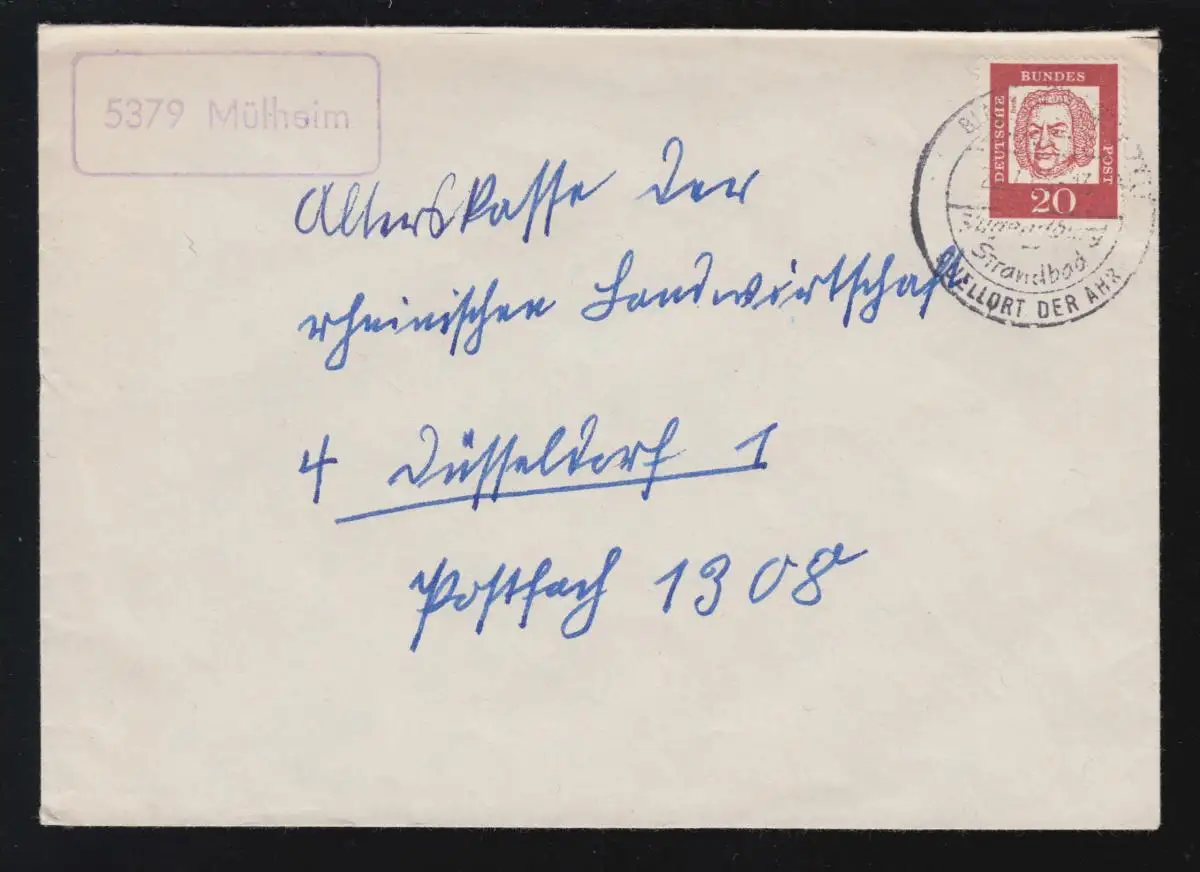 5379 Mülheim
DEUTSCHE
BUNDES
POST
20
Jugendburg
Strandbad
QUELLORT DER AHR
Alterskasse der
rheinischen Landwirtschaft
4 Düsseldorf 1
Postfach 1308